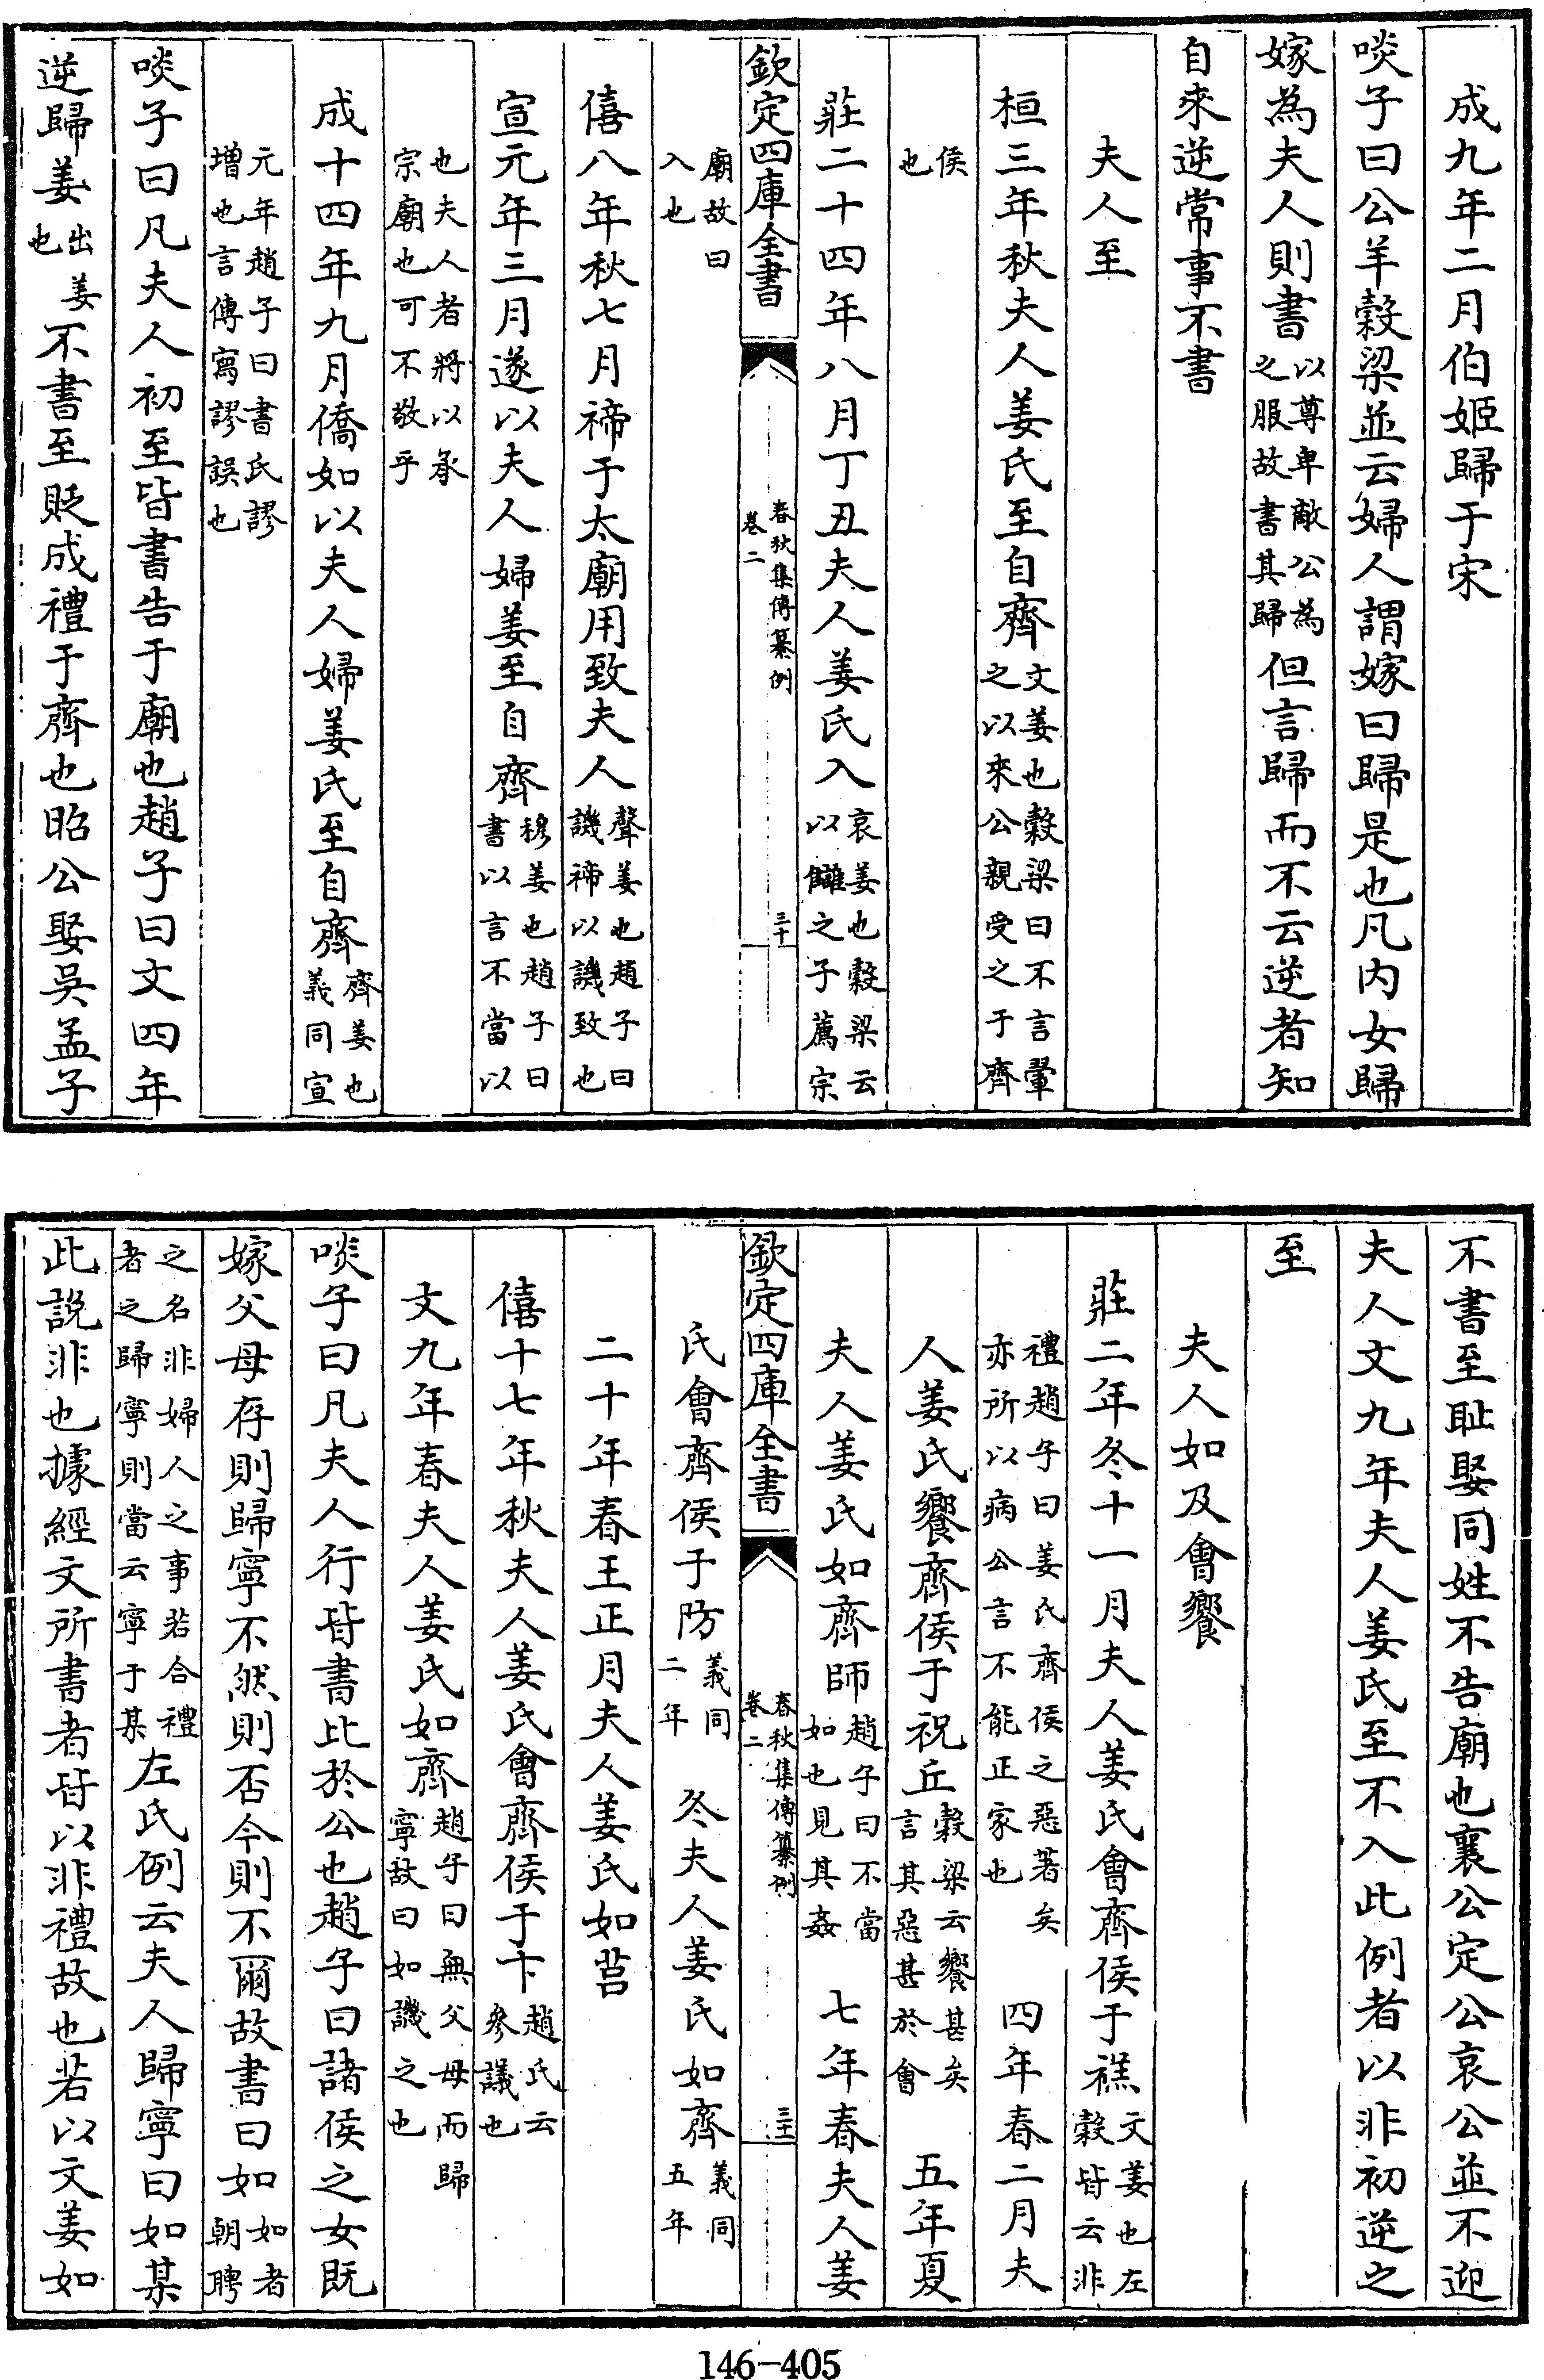 成九年二月伯姬歸于宋
啖子曰公羊穀梁並云婦人謂嫁曰歸是也凡內女歸
嫁為夫人則書以尊卑敵公為之服故書其歸但言歸而不云逆者知
自來逆常事不書
夫人至
桓三年秋夫人姜氏至自齊文姜也穀梁曰不言翬之以來公親受之于齊
侯也
莊二十四年八月丁丑夫人姜氏入哀姜也穀梁云以讎之子薦宗
廟故曰入也
欽定四庫全書
春秋集傳纂例
卷二
三十
僖八年秋七月禘于太廟用致夫人聲姜也趙子曰譏禘以譏致也
宣元年三月遂以夫人婦姜至自齊穆姜也趙子曰書以言不當以
也夫人者將以承宗廟也可不敬乎
成十四年九月僑如以夫人婦姜氏至自齊齊姜也義同宣
元年趙子曰書氏謬增也言傳寫謬誤也
啖子曰凡夫人初至皆書告于廟也趙子曰文四年
逆歸姜出姜也不書至貶成禮于齊也昭公娶吳孟子
不書至耻娶同姓不告廟也襄公定公哀公並不迎
夫人文九年夫人姜氏至不入此例者以非初逆之
至
夫人如及會饗
莊二年冬十一月夫人姜氏會齊侯于禚文姜也左穀皆云非
禮趙子曰姜氏齊侯之惡著矣亦所以病公言不能正家也 四年春二月夫
人姜氏饗齊侯于祝丘穀梁云饗甚矣言其惡甚於會 五年夏
夫人姜氏如齊師趙子曰不當如也見其姦 七年春夫人姜
欽定四庫全書
春秋集傳纂例
卷二
三十一
氏會齊侯于防義同二年 冬夫人姜氏如齊義同五年
二十年春王正月夫人姜氏如莒
僖十七年秋夫人姜氏會齊侯于卞趙氏云參譏也
文九年春夫人姜氏如齊趙子曰無父母而歸寧故曰如譏之也
啖子曰凡夫人行皆書比於公也趙子曰諸侯之女既
嫁父母存則歸寧不然則否今則不爾故書曰如如者朝聘
之名非婦人之事若合禮者之歸寧則當云寧于某左氏例云夫人歸寧曰如某
此說非也據經文所書者皆以非禮故也若以文姜如
146-405